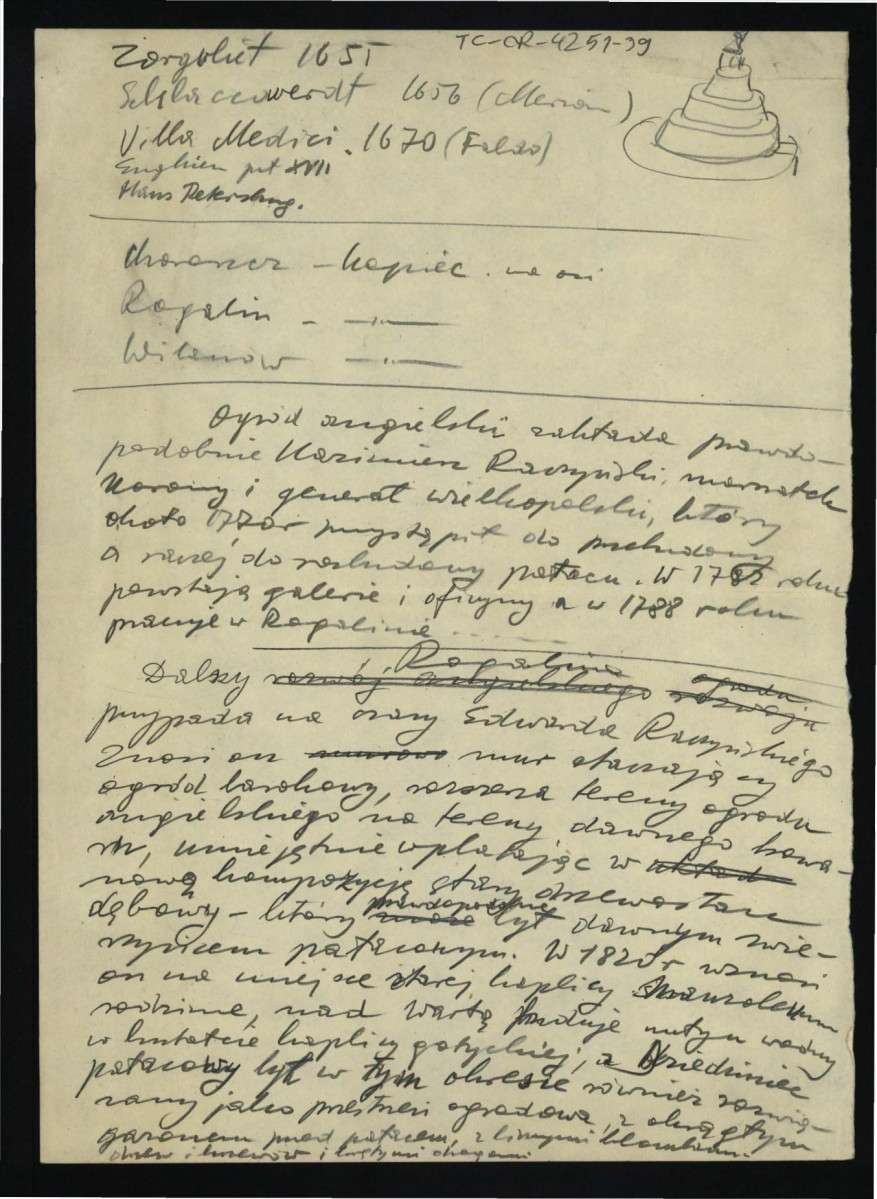 TC-CR-4251-39
Zorgvliet 1651
1656 (Merian)
Villa Medici. 1670 (Falda)
Enghien pocz XVII
Haus Petersburg.
Choroszcz – kopiec na osi
Rogalin – — " —
Wilanów — " —
Ogród angielski zakłada prawdo-
podobnie Kazimierz Raczyński, marszałek
koronny i generał wielkopolski, który
około 1770r przystąpił do przebudowy
a raczej do rozbudowy pałacu. W 1782 roku
powstają galerie i oficyny a w 1788 roku
pracuje w Rogalinie ......
Dalszy rozwój angielskiego Rogalina ogrodu rozwoju
przypada na czasy Edwarda Raczyńskiego
Znosi on mur otaczający
ogród barokowy, rozszerza tereny ogrodu
angielskiego na tereny dawnego
umiejętnie wplatając w układ
nową kompozycję stary drzewostan
dębowy – który prawdopodobnie może był dawnym zwie-
rzyńcem pałacowym. W 1820r wznosi
on na miejsce starej kaplicy mauzoleum
rodzinne, nad Wartą buduje młyn wodny
w kształcie kaplicy gotyckiej, a Dziedziniec
pałacowy był w tym okresie również rozwią-
zany jako przestrzeń ogrodowa, z okrągłym
gazonem przed pałacem, z licznymi klombami
drzew i krzewów i krętymi drogami